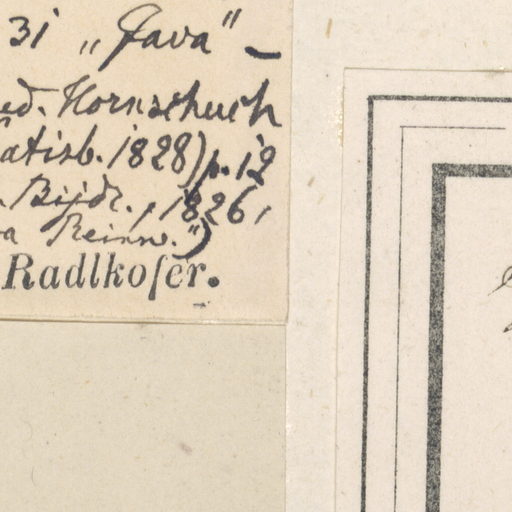 31 „Java“ –
ed. Hornschuch
atisb. 1828) p. 12
. Bijdr., 1826,
a Reinw.“)
Radlkofer.